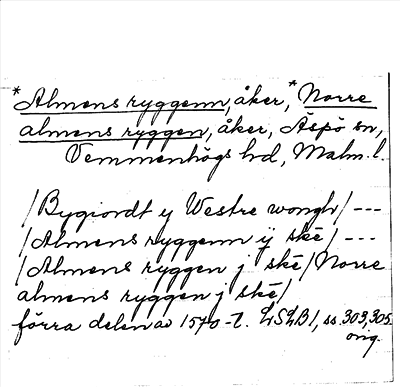 *Almens ryggenn, åker, *Norre
almens ryggen, åker, Äspö sn,
Vemmenhögs hd, Malm. l.
/Bygiordt y Westre wongh/ ---
/Almens ryggenn ÿ ské/ ---
/Almens ryggen j ské/Norre
almens ryggen j ské/
förra delen av 1570-t. LSLB1, ss. 303, 305
orig.